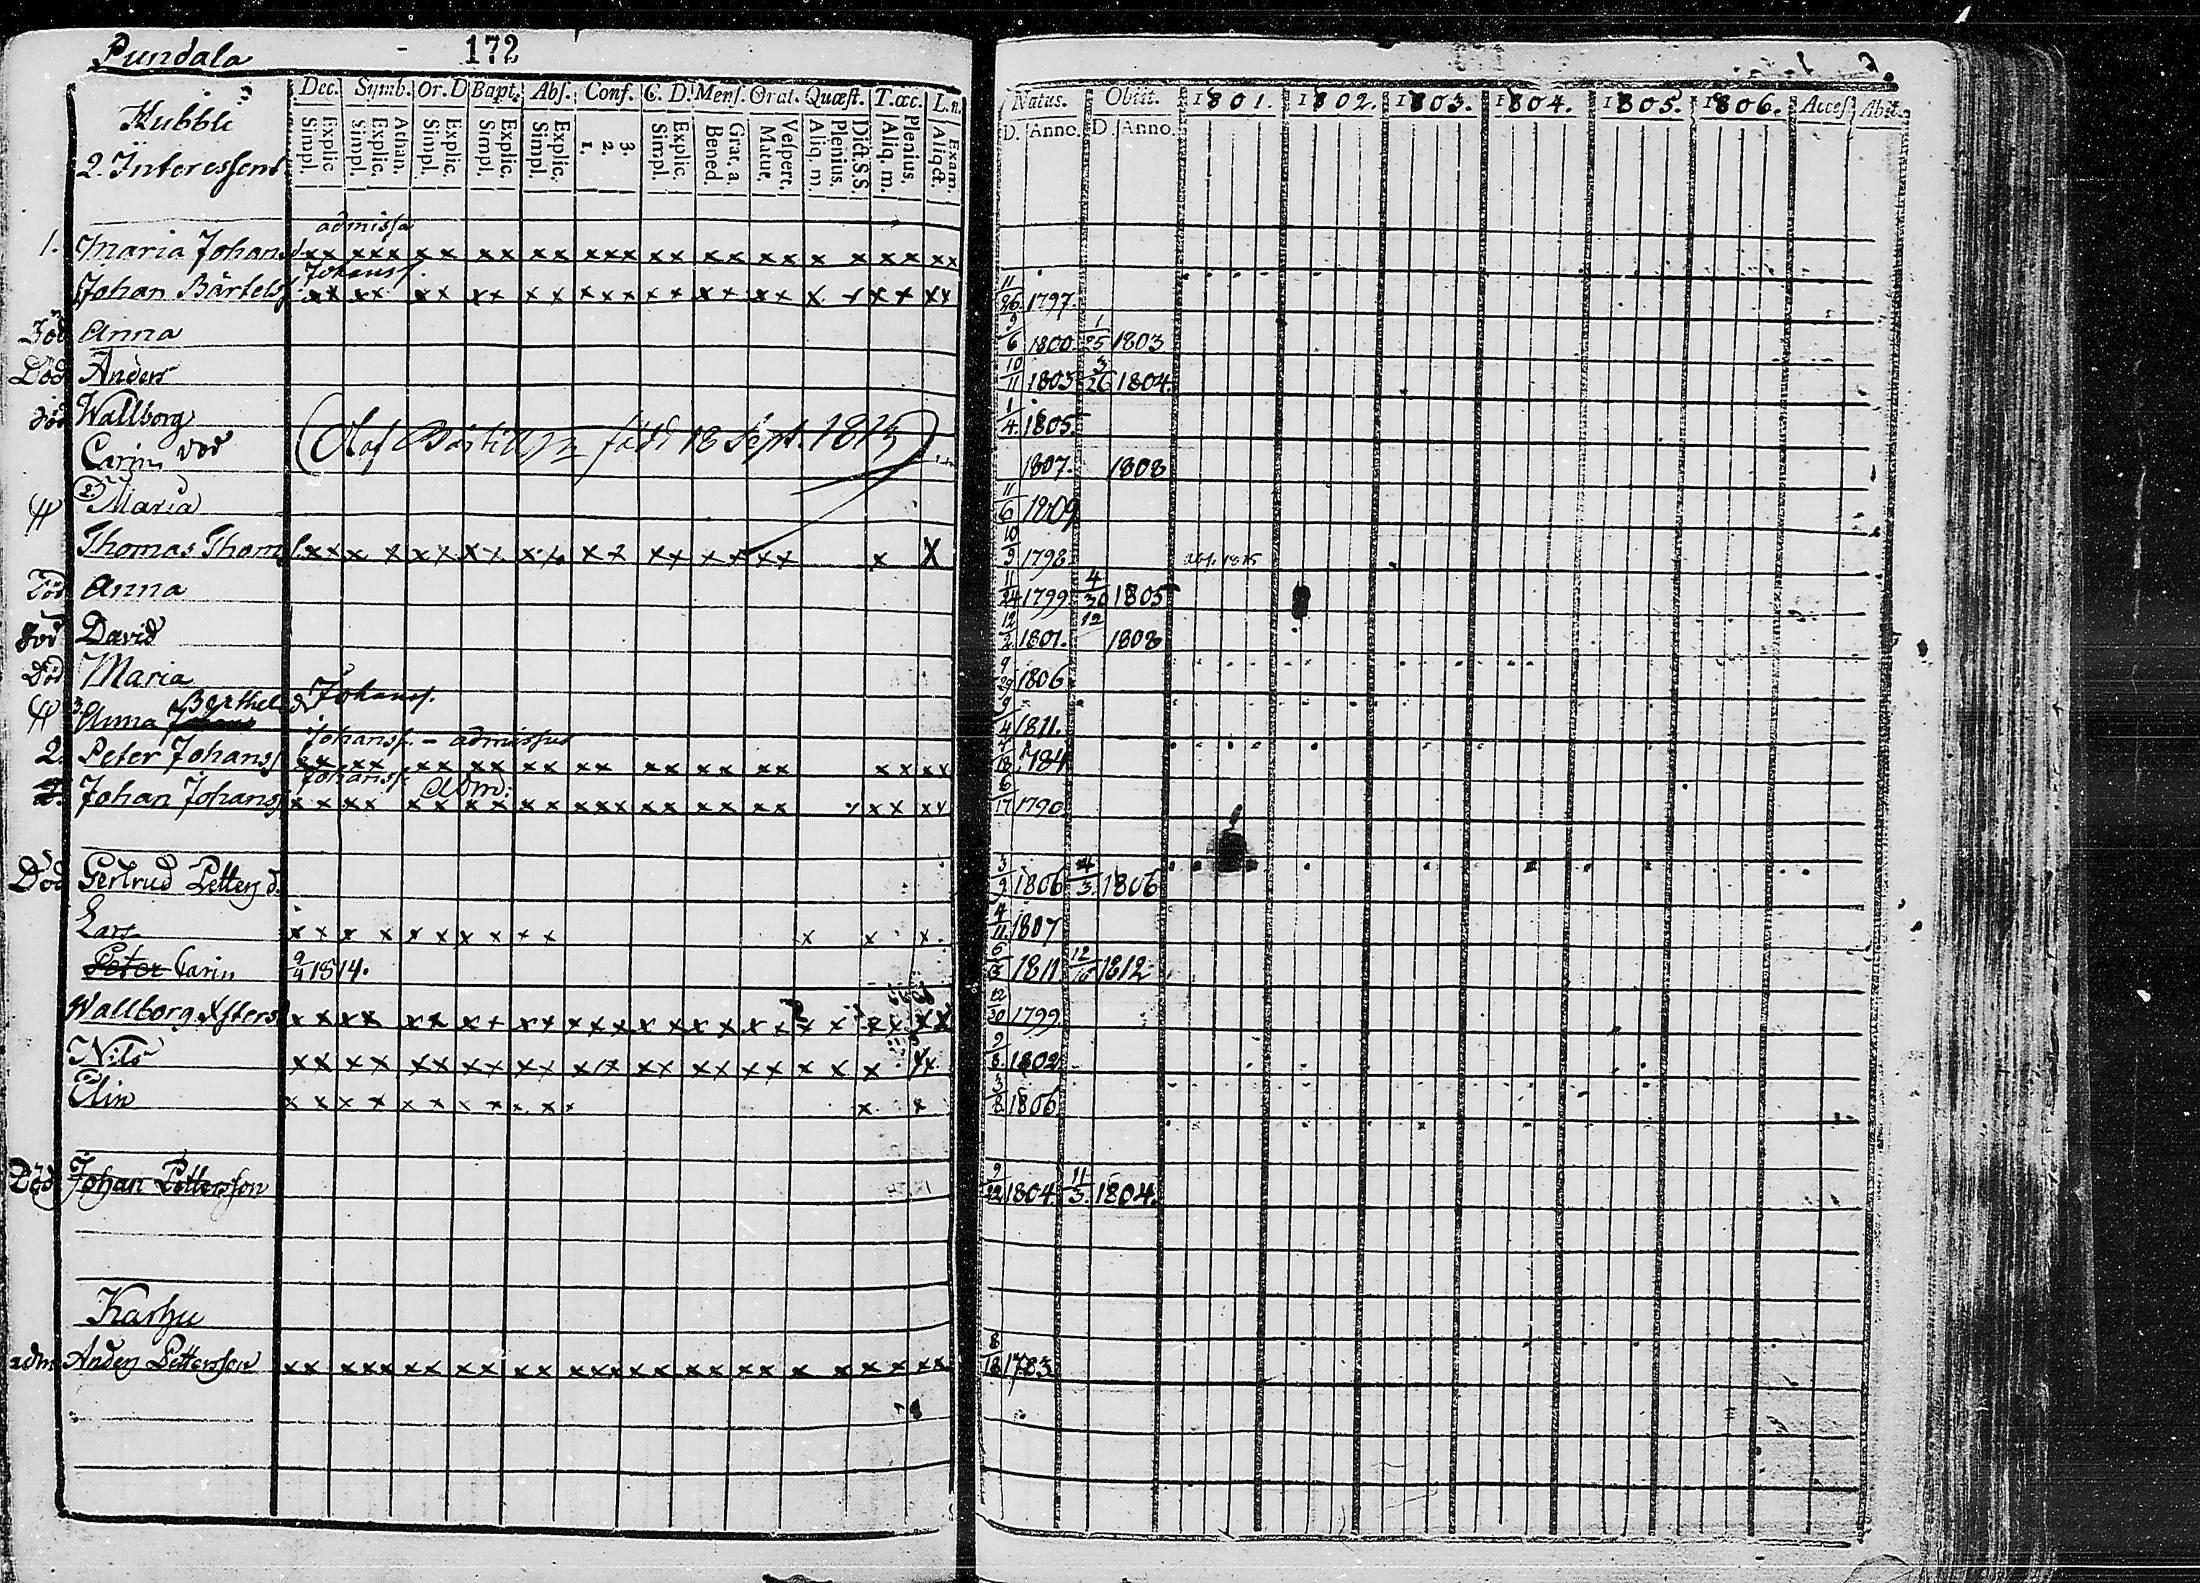 Pundala 172
Kubbli
2. Interessent
Dec. Symb. Or. D Bapt. Abs. Conf. C. D. Mens. Orat. Quæst. T. œc. L. n.
Simpl. Explic. Simpl. Explic. Athan. Simpl. Explic. Simpl. Explic. Simpl. Explic. 1. 2. 3. Simpl. Explic. Bened. Grat. a. Matut. Vespert. Aliq. m. Plenius. Dict. S. S. Aliq. m. Plenius. Aliqct. Exam.
Natus. Obiit. 1801. 1802. 1803. 1804. 1805. 1806. Access. Abit.
D. Anno. D. Anno.
admissa
1. Maria Johansd xx xxx xx xx xx xxx xx xx xx x x xx xx
Johanss.
Johan Bärtelss. xx xx xx xx xx xxx xx xx xx x x xx xx 11/26 1797.
Död Anna 9/6 1800. 1/25 1803
Död Anders 10/11 1803 3/26 1804.
död Wallborg 1/4 1805.
(Olof Bärtilss. född 18 Sept. 1813)
Carin död 1807. 1808
2. Maria 11/6 1809
Thomas Thoms. xx x x xx xx xx xx xx xx xx x X 10/9 1798 abs. 1815
Död Anna 11/24 1799 4/30 1805
Död David 12/2 1801. 12 1808
Död Maria 9/29 1806
3. Anna Berthelsd Johanss. 9/4 1811.
Johanss. - admissus
2. Peter Johanss. xx xx xx xx xx xx xx xx xx xx xx /18 1784
Johanss. Adm:
Johan Johanss. xx xx xx xx xx xxx xx xx xx x xx xx 6/17 1790
Död Gertrud Petters d. 3/9 1806 4/3. 1806
Lars x x x x x x x x x x x x. 4/11. 1807
Peter Carin 9/4 1814. 6/3 1811 12/16 1812
Wallborg xx xx xx xx xx xxx xx xx xx x x xx xx 12/30 1799.
Nils xx xx xx xx xx x xx xx xx xx x x x xx 9/8. 1802.
Elin x x x x x x x x x x x x x 3/8 1806
Död Johan Pettersson 9/22 1804. 11/3. 1804.
Karhu
adm Anders Pettersson xx xxx xx xx xx xxx xx xx xx x x x x xx 8/18 1783